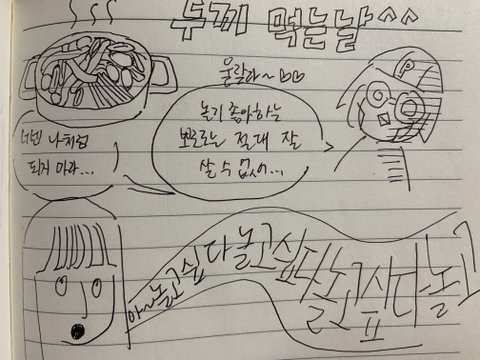 두끼 먹는날^^
울랄라~
너넨 나처럼
되지 마라...
놀기 좋아하는
뽀로로는 절대 잘
살 수 없어...
아~놀고싶다놀고싶다놀고싶다놀고